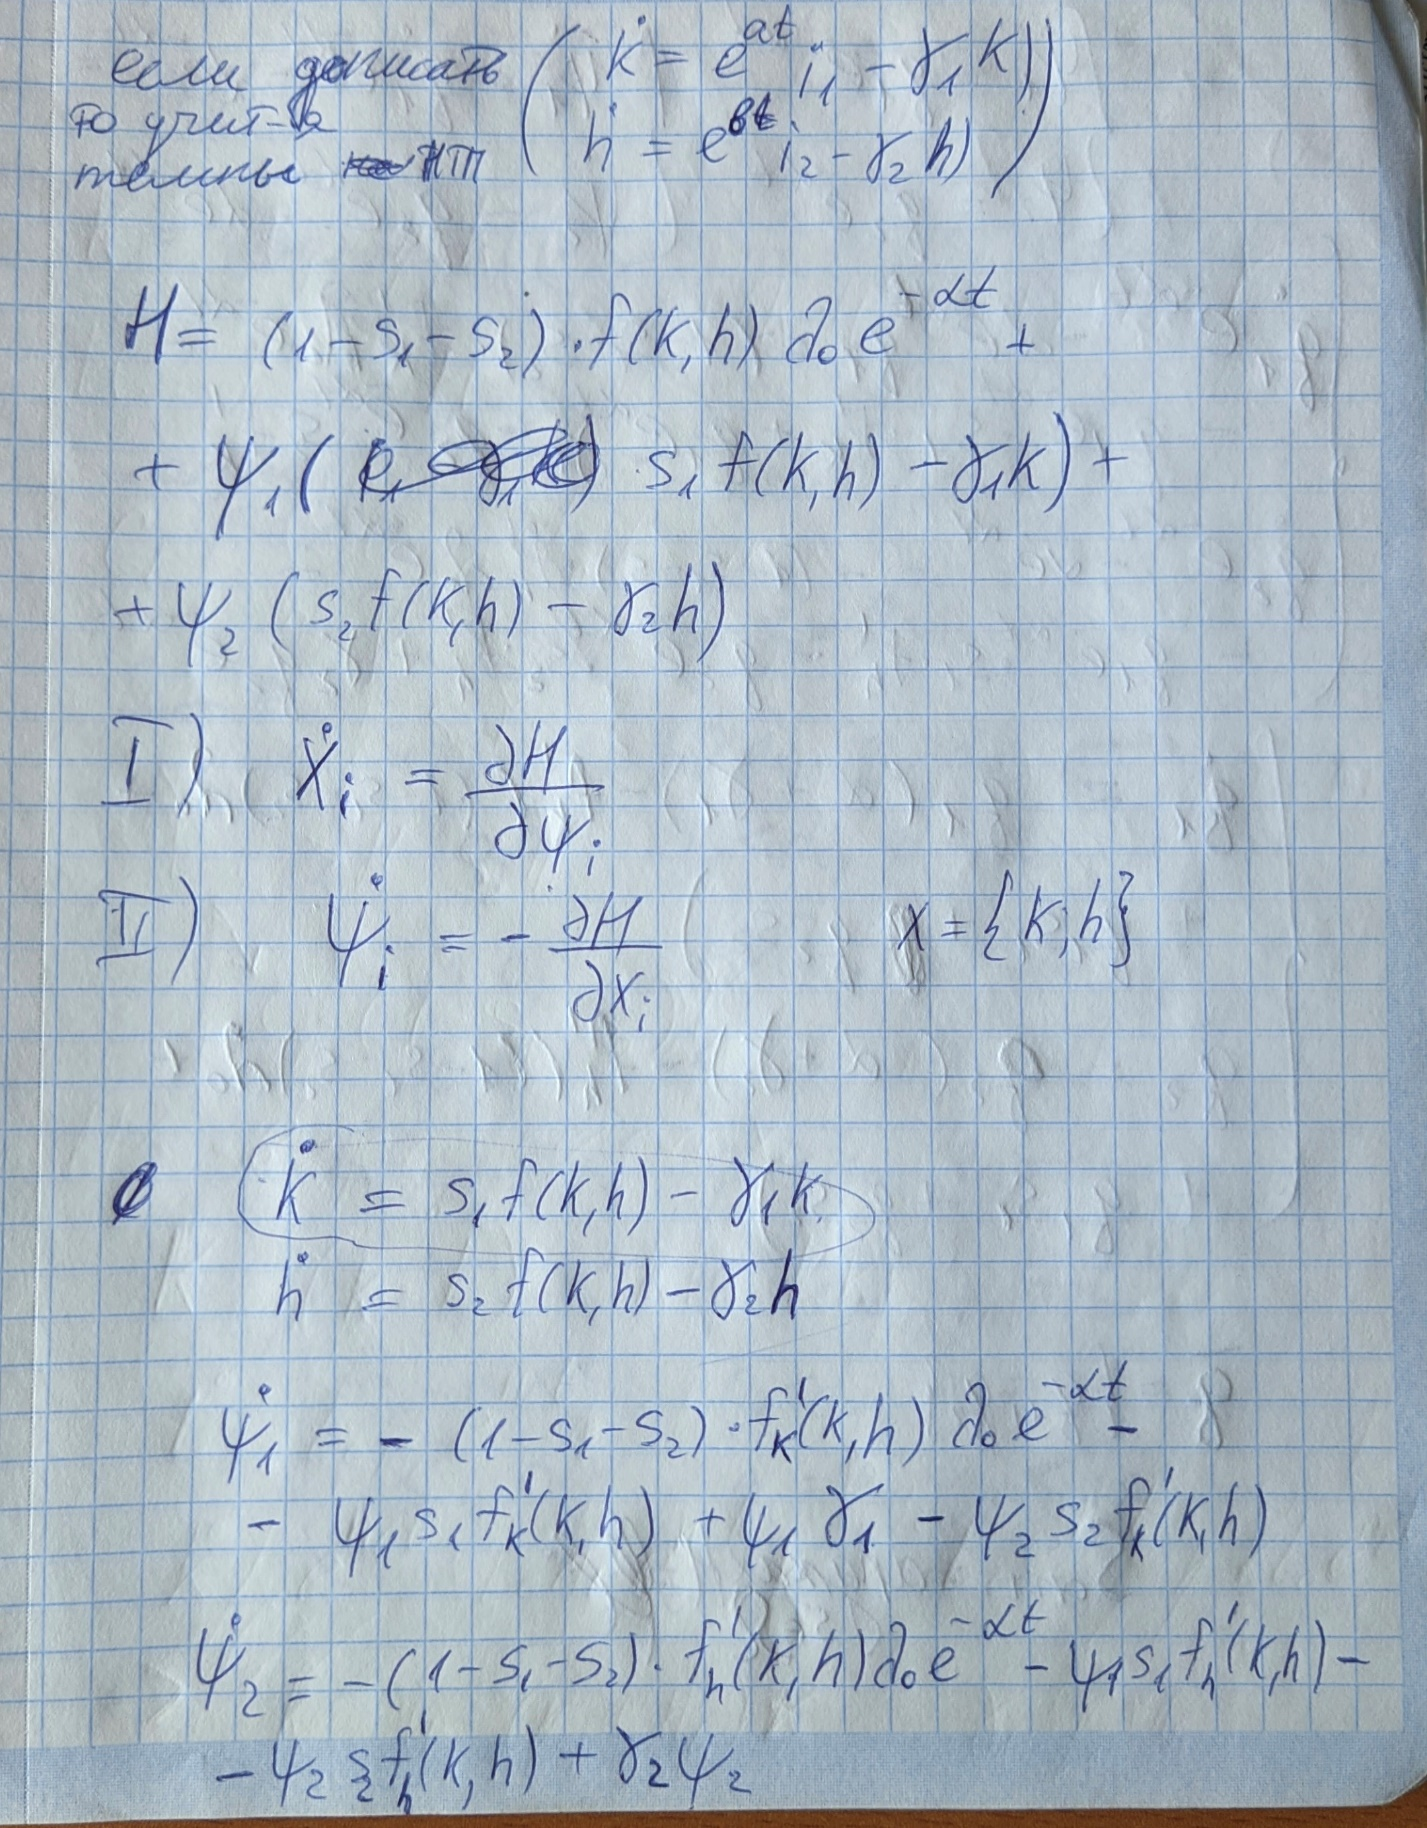 если дописать ( k̇ = e^{at} i₁ - γ₁ k) )
то учит-ся
темпы НТП ( ḣ = e^{bt} i₂ - γ₂ h) )
H = (1-s₁-s₂)·f(k,h) λ₀ e^{-αt} +
+ ψ₁( s₁ f(k,h) - γ₁k) +
+ ψ₂ (s₂ f(k,h) - γ₂h)
I) ẋᵢ = ∂H/∂ψᵢ
II) ψ̇ᵢ = - ∂H/∂xᵢ x = {k; h}
k̇ = s₁ f(k,h) - γ₁k
ḣ = s₂ f(k,h) - γ₂h
ψ̇₁ = - (1-s₁-s₂)·f'ₖ(k,h) λ₀ e^{-αt} -
- ψ₁ s₁ f'ₖ(k,h) + ψ₁ γ₁ - ψ₂ s₂ f'ₖ(k,h)
ψ̇₂ = -(1-s₁-s₂)·f'ₕ(k,h) λ₀ e^{-αt} - ψ₁ s₁ f'ₕ(k,h) -
- ψ₂ s₂ f'ₕ(k,h) + γ₂ψ₂